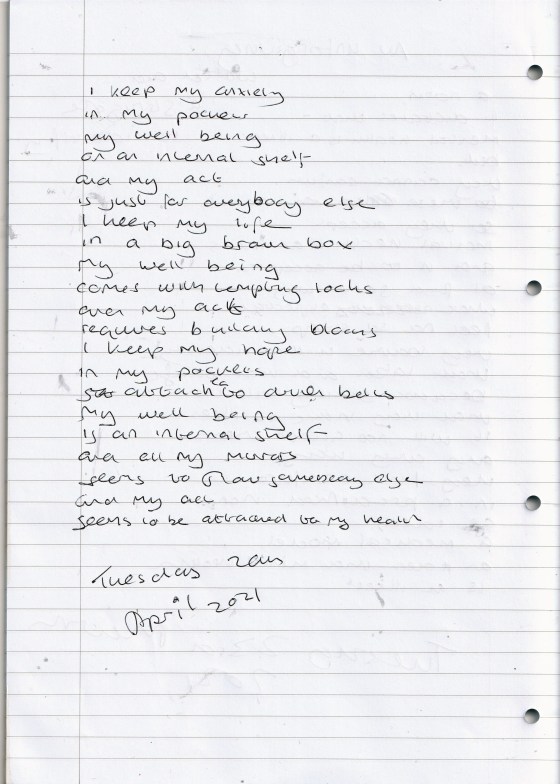 I keep my anxiety
in my pockets
my well being
on an internal shelf
and my act
is just for everybody else
I keep my life
in a big brain box
my well being
comes with tempting locks
and my act
requires building blocks
I keep my hope
in my pockets
attached to belts
my well being
is an internal shelf
and all my
seems to somebody else
and my act
seems to be attached to my health
Tuesday 20th
April 2021